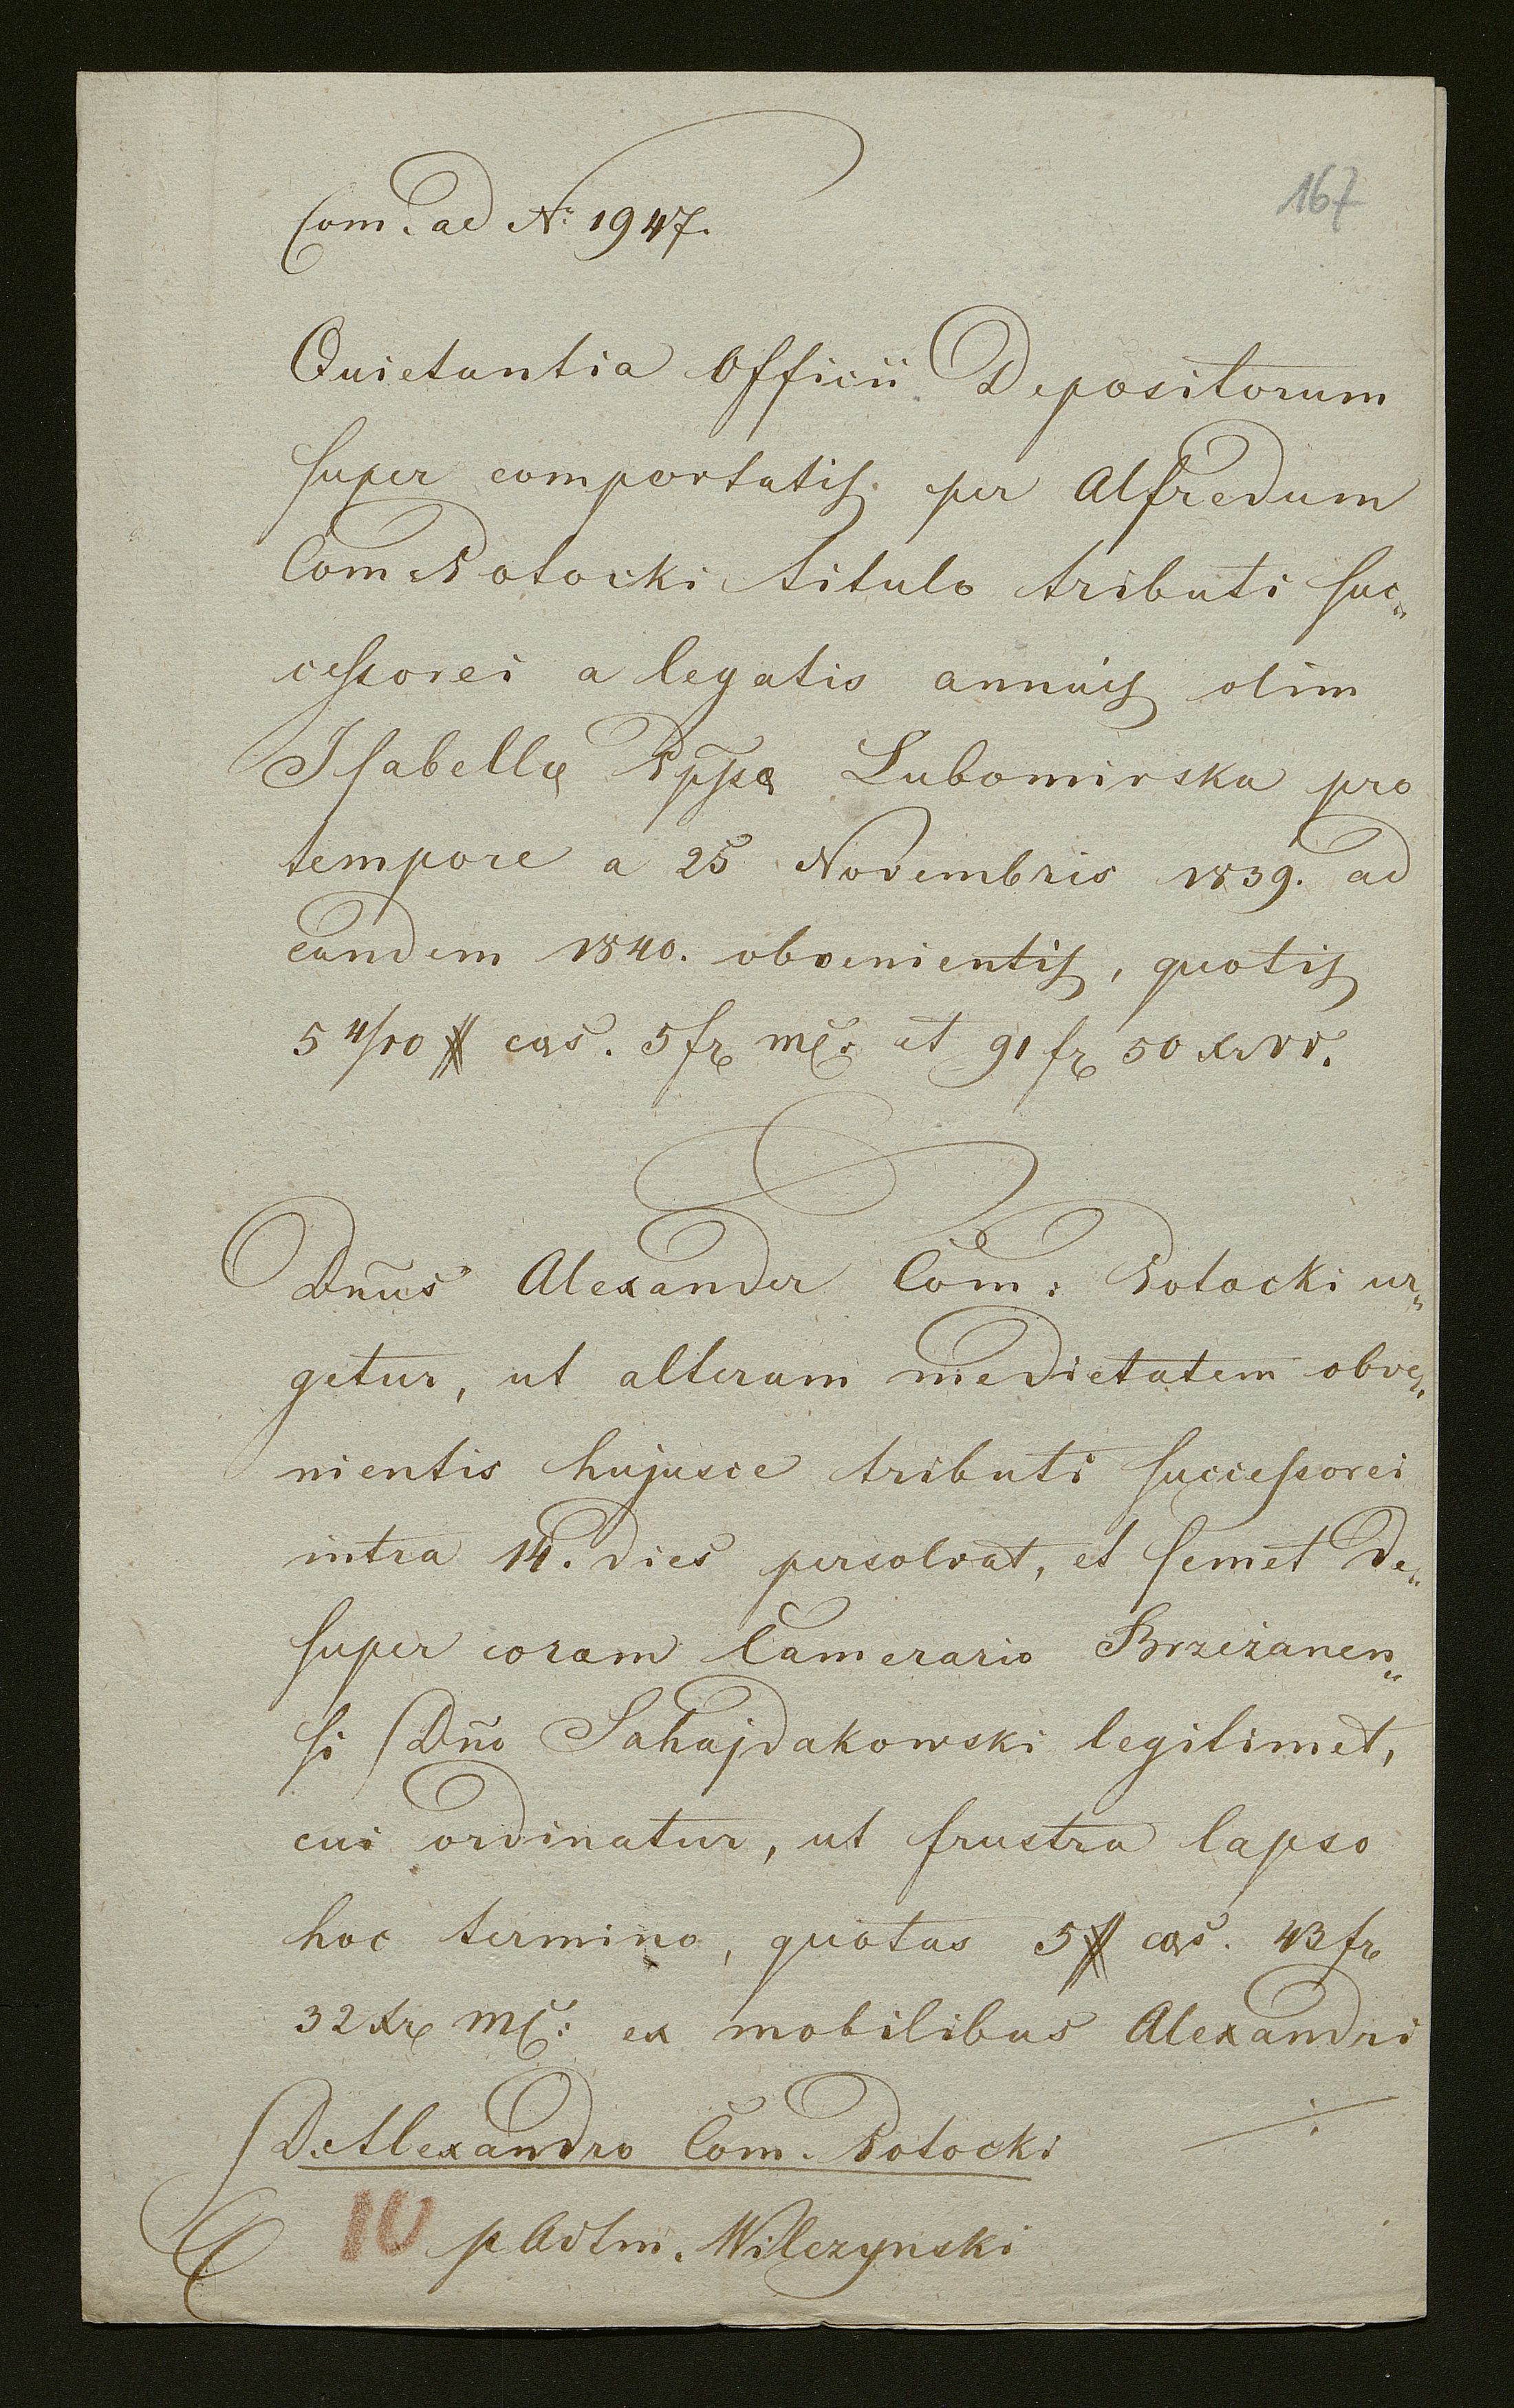 167
Com. ad Nr: 1947.
Quietantia Officii Depositorum
super comportatis per Alfredum
Com Potocki titulo tributi suc„
cessorei a legatis annuis olim
Isabellæ Ppssæ Lubomirska pro
tempore a 25 Novembris 1839. ad
eandem 1840. obvenientis, quotis
5 4/10 # caes. 5 fr mc: et 91 fr 50 xr vv.
Dn̄us Alexander Com: Potocki ur„
getur, ut alteram medietatem obve„
nientis hujusce tributi successorei
intra 14. dies persolvat, et semet de„
super coram Camerario Brzezanen„
si Dn̄o Sahajdakowski legitimet,
cui ordinatur, ut frustra lapso
hoc termino, quotas 5 # caes. 43 fr
32 xr mc: ex mobilibus Alexandri
D. Alexandro Com. Potocki ./.
10 p Adtm. Wilczynski